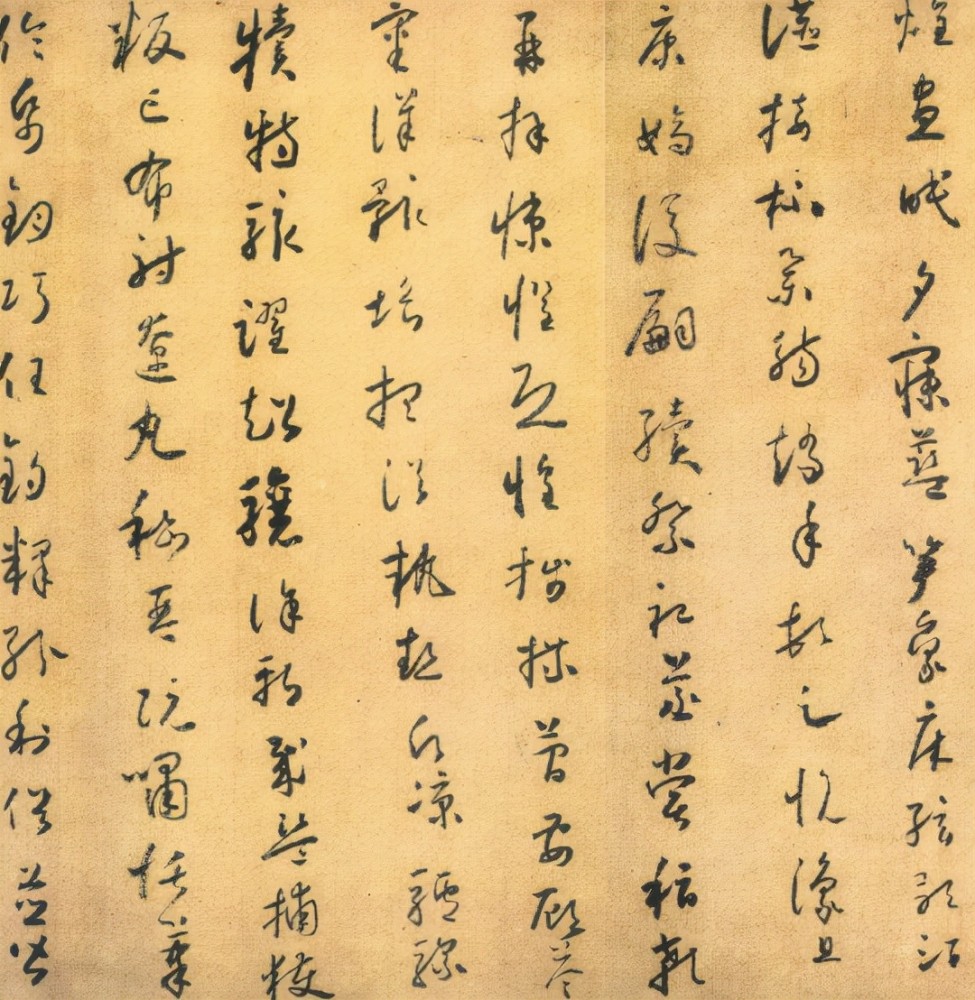 煌晝眠夕寐藍筍象床弦歌酒
讌接杯舉觴矯手頓足悅豫且
康嫡後嗣續祭祀蒸嘗稽顙
再拜悚懼恐惶牋牒簡要顧答
審詳骸垢想浴執熱願涼驢騾
犢特駭躍超驤誅斬賊盜捕獲
叛亡布射遼丸嵇琴阮嘯恬筆
倫紙鈞巧任釣釋紛利俗並皆